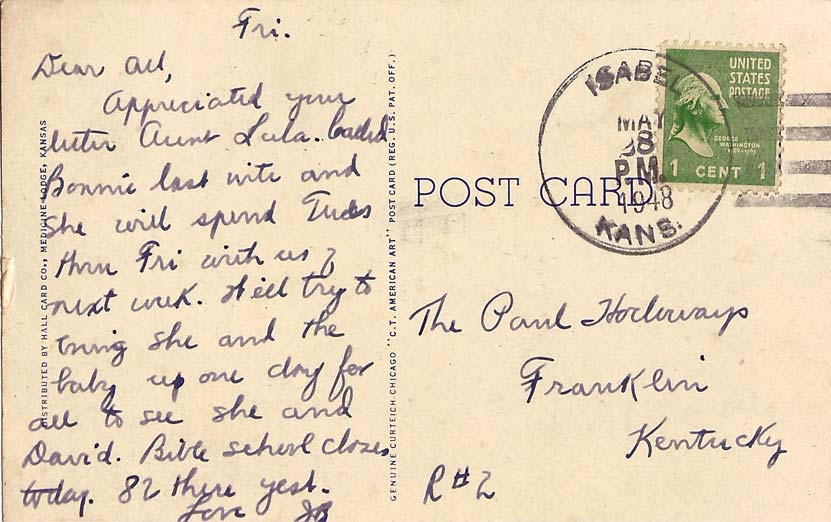 Fri.
Dear all,
Appreciated your
letter Aunt Lula. Called
Bonnie last nite and
she will spend Tues
thru Fri with us
next week. Will try to
bring she and the
baby up one day for
all to see she and
David. Bible school closes
today. 82 there yest.
Love JB
DISTRIBUTED BY HALL CARD CO., MEDICINE LODGE, KANSAS
GENUINE CURTEICH-CHICAGO "C.T. AMERICAN ART" POST CARD (REG. U.S. PAT. OFF.)
POST CARD
ISABEL
MAY
P.M.
1948
KANS.
UNITED
STATES
POSTAGE
GEORGE
WASHINGTON
1 CENT 1
The Paul Holloways
Franklin
Kentucky
R#2